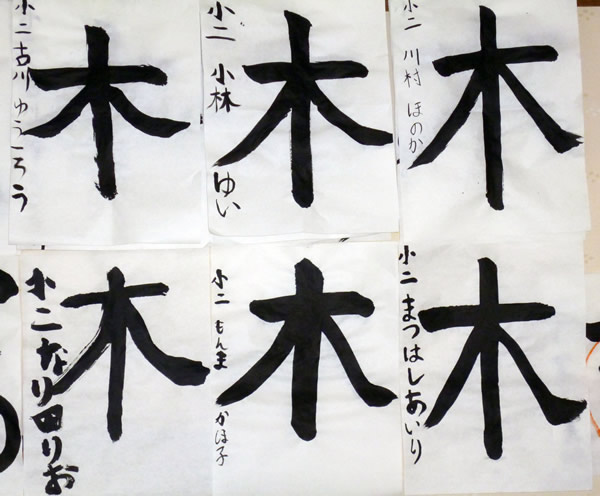 木
小二 古川 ゆうころう
木
小二 小林 ゆい
木
小二 川村 ほのか
木
小二 なり田りお
木
小二 もんま かほ子
木
小二 まつはしあいり